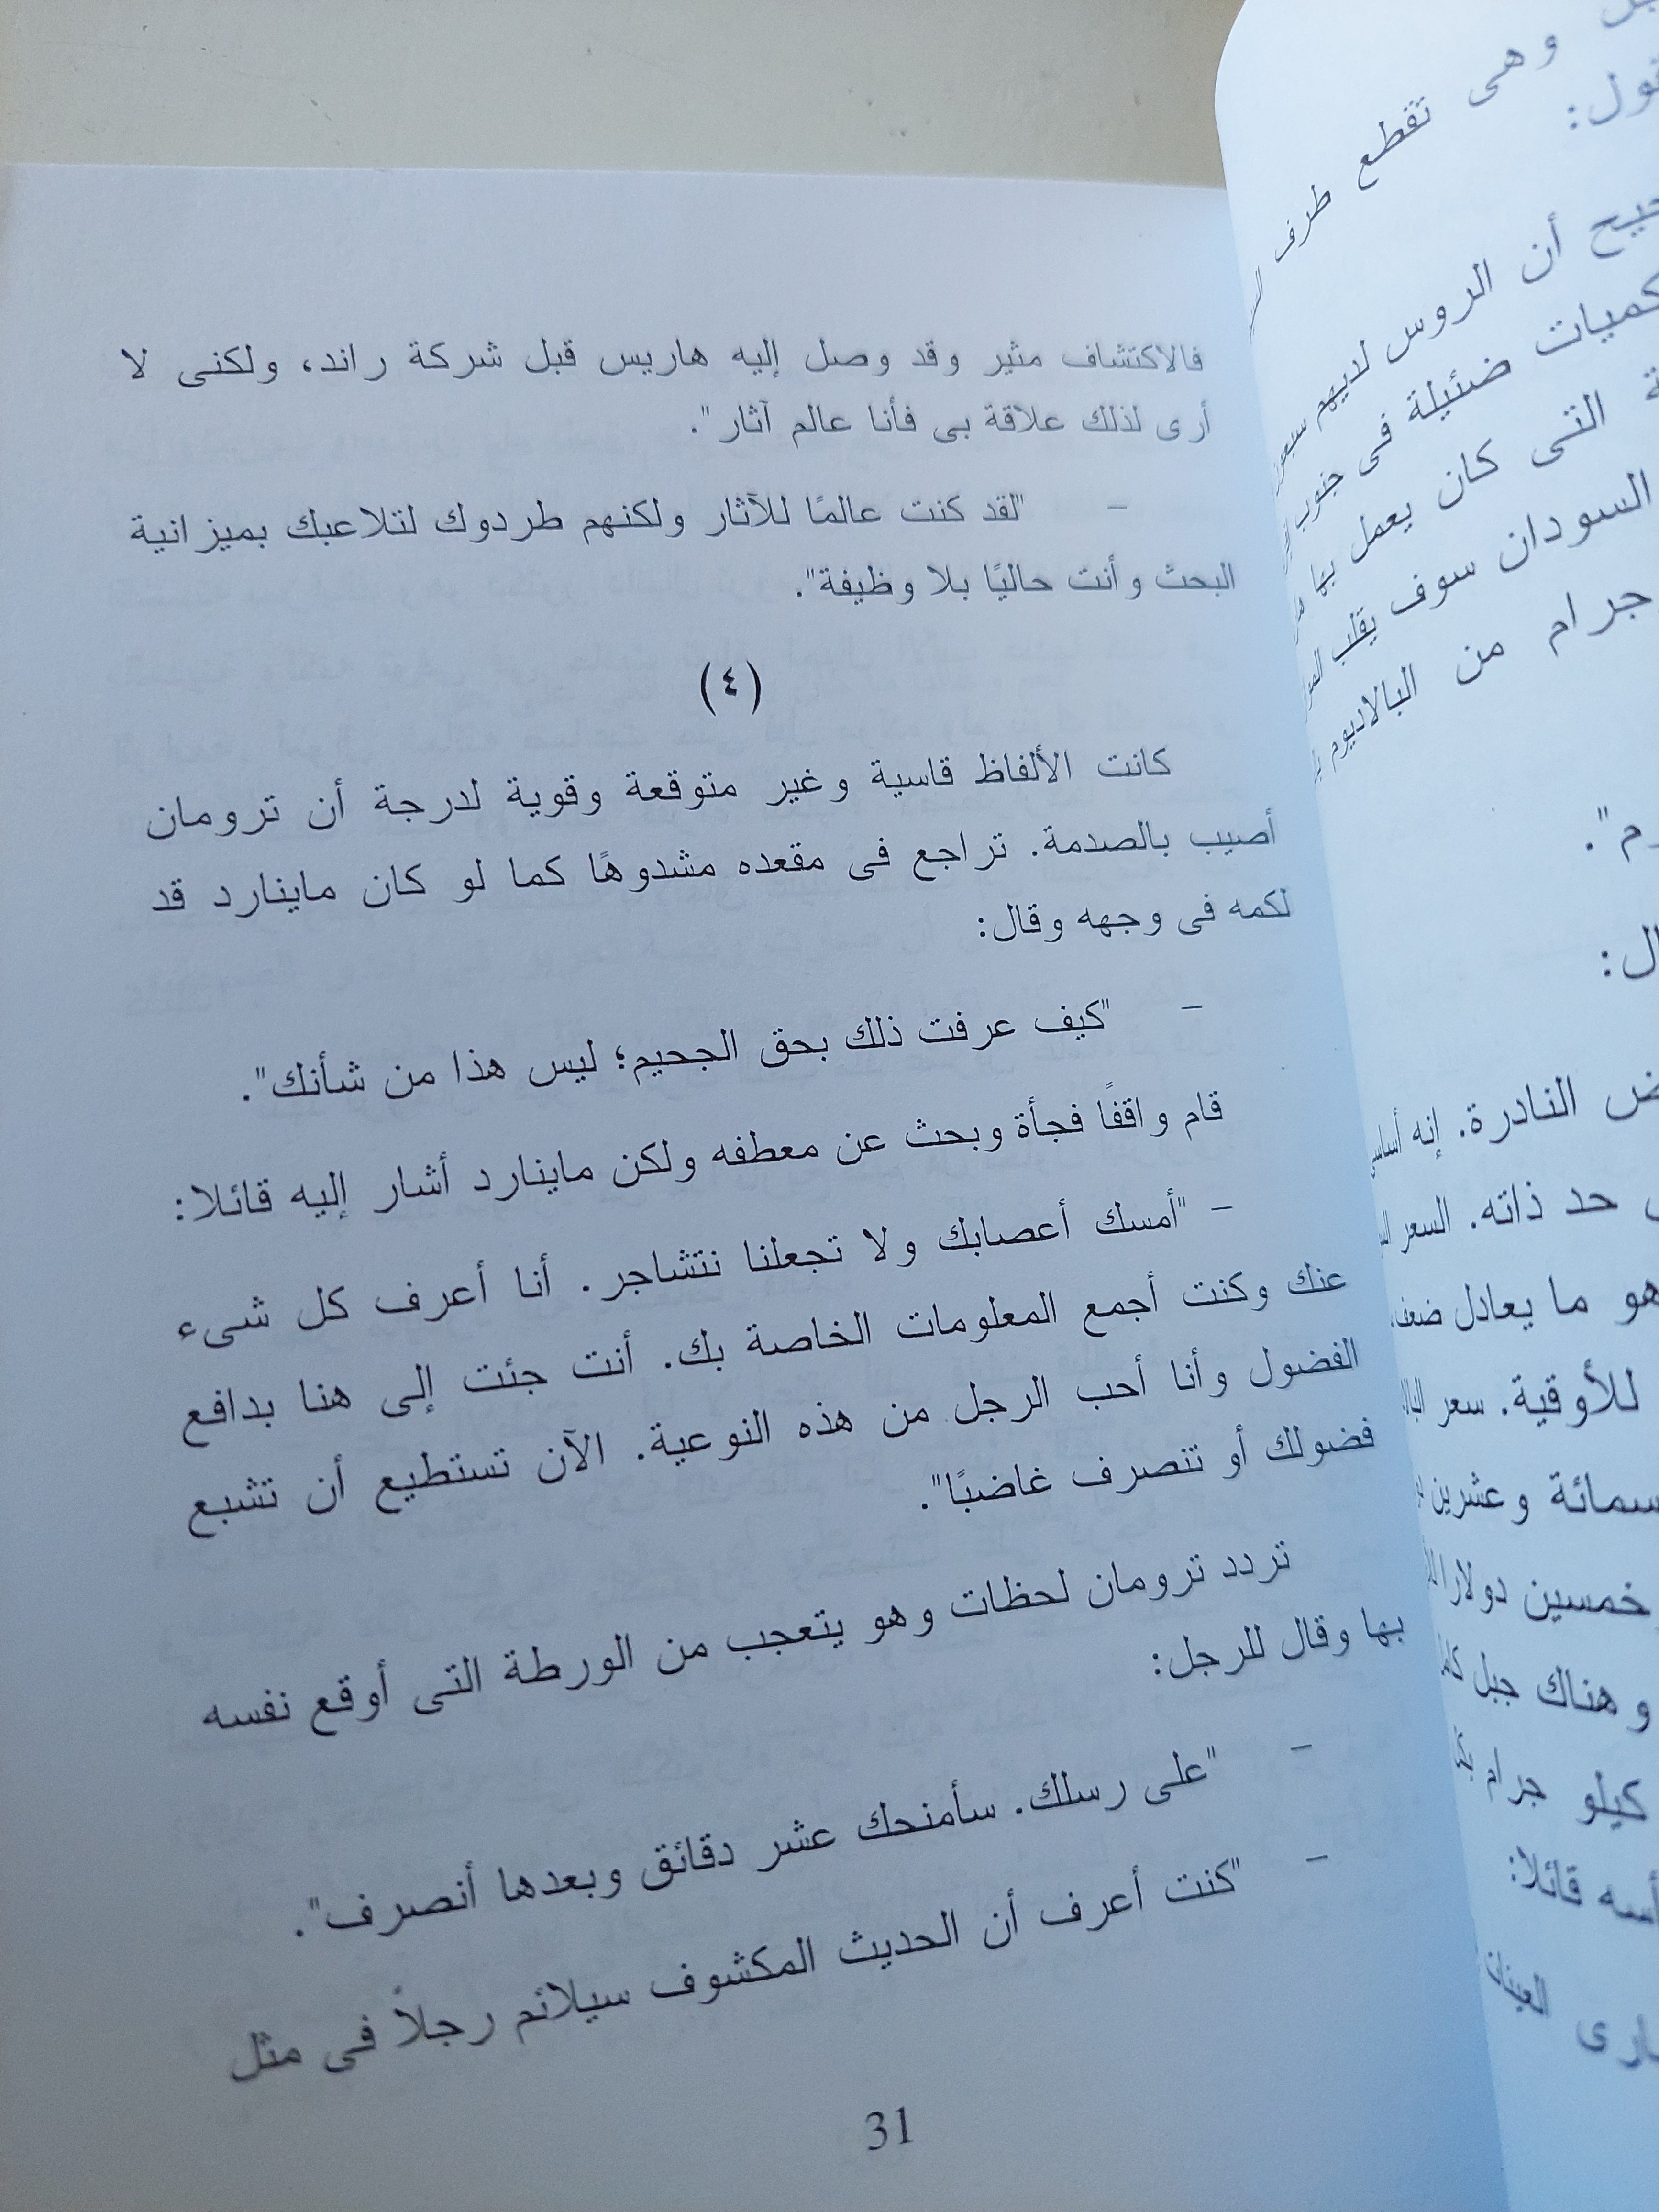 فالاكتشاف مثير وقد وصل إليه هاريس قبل شركة راند، ولكنى لا
أرى لذلك علاقة بى فأنا عالم آثار".
– "لقد كنت عالمًا للآثار ولكنهم طردوك لتلاعبك بميزانية
البحث وأنت حاليًا بلا وظيفة".
(٤)
كانت الألفاظ قاسية وغير متوقعة وقوية لدرجة أن ترومان
أصيب بالصدمة. تراجع فى مقعده مشدوهًا كما لو كان ماينارد قد
لكمه فى وجهه وقال:
– "كيف عرفت ذلك بحق الجحيم؛ ليس هذا من شأنك".
قام واقفًا فجأة وبحث عن معطفه ولكن ماينارد أشار إليه قائلا:
– "أمسك أعصابك ولا تجعلنا نتشاجر. أنا أعرف كل شىء
عنك وكنت أجمع المعلومات الخاصة بك. أنت جئت إلى هنا بدافع
الفضول وأنا أحب الرجل من هذه النوعية. الآن تستطيع أن تشبع
فضولك أو تتصرف غاضبًا".
تردد ترومان لحظات وهو يتعجب من الورطة التى أوقع نفسه
بها وقال للرجل:
– "على رسلك. سأمنحك عشر دقائق وبعدها أنصرف".
– "كنت أعرف أن الحديث المكشوف سيلائم رجلاً فى مثل
31
وهى تقطع طرف
أن الروس لديهم
كميات ضئيلة فى جنوب
التى كان يعمل بها
السودان سوف يقلب
جرام من البالاديوم
النادرة. إنه أساسى
حد ذاته. السعر
هو ما يعادل
للأوقية. سعر
وعشرين
خمسين
وهناك جبل
كيلو جرام
قائلا:
العينات